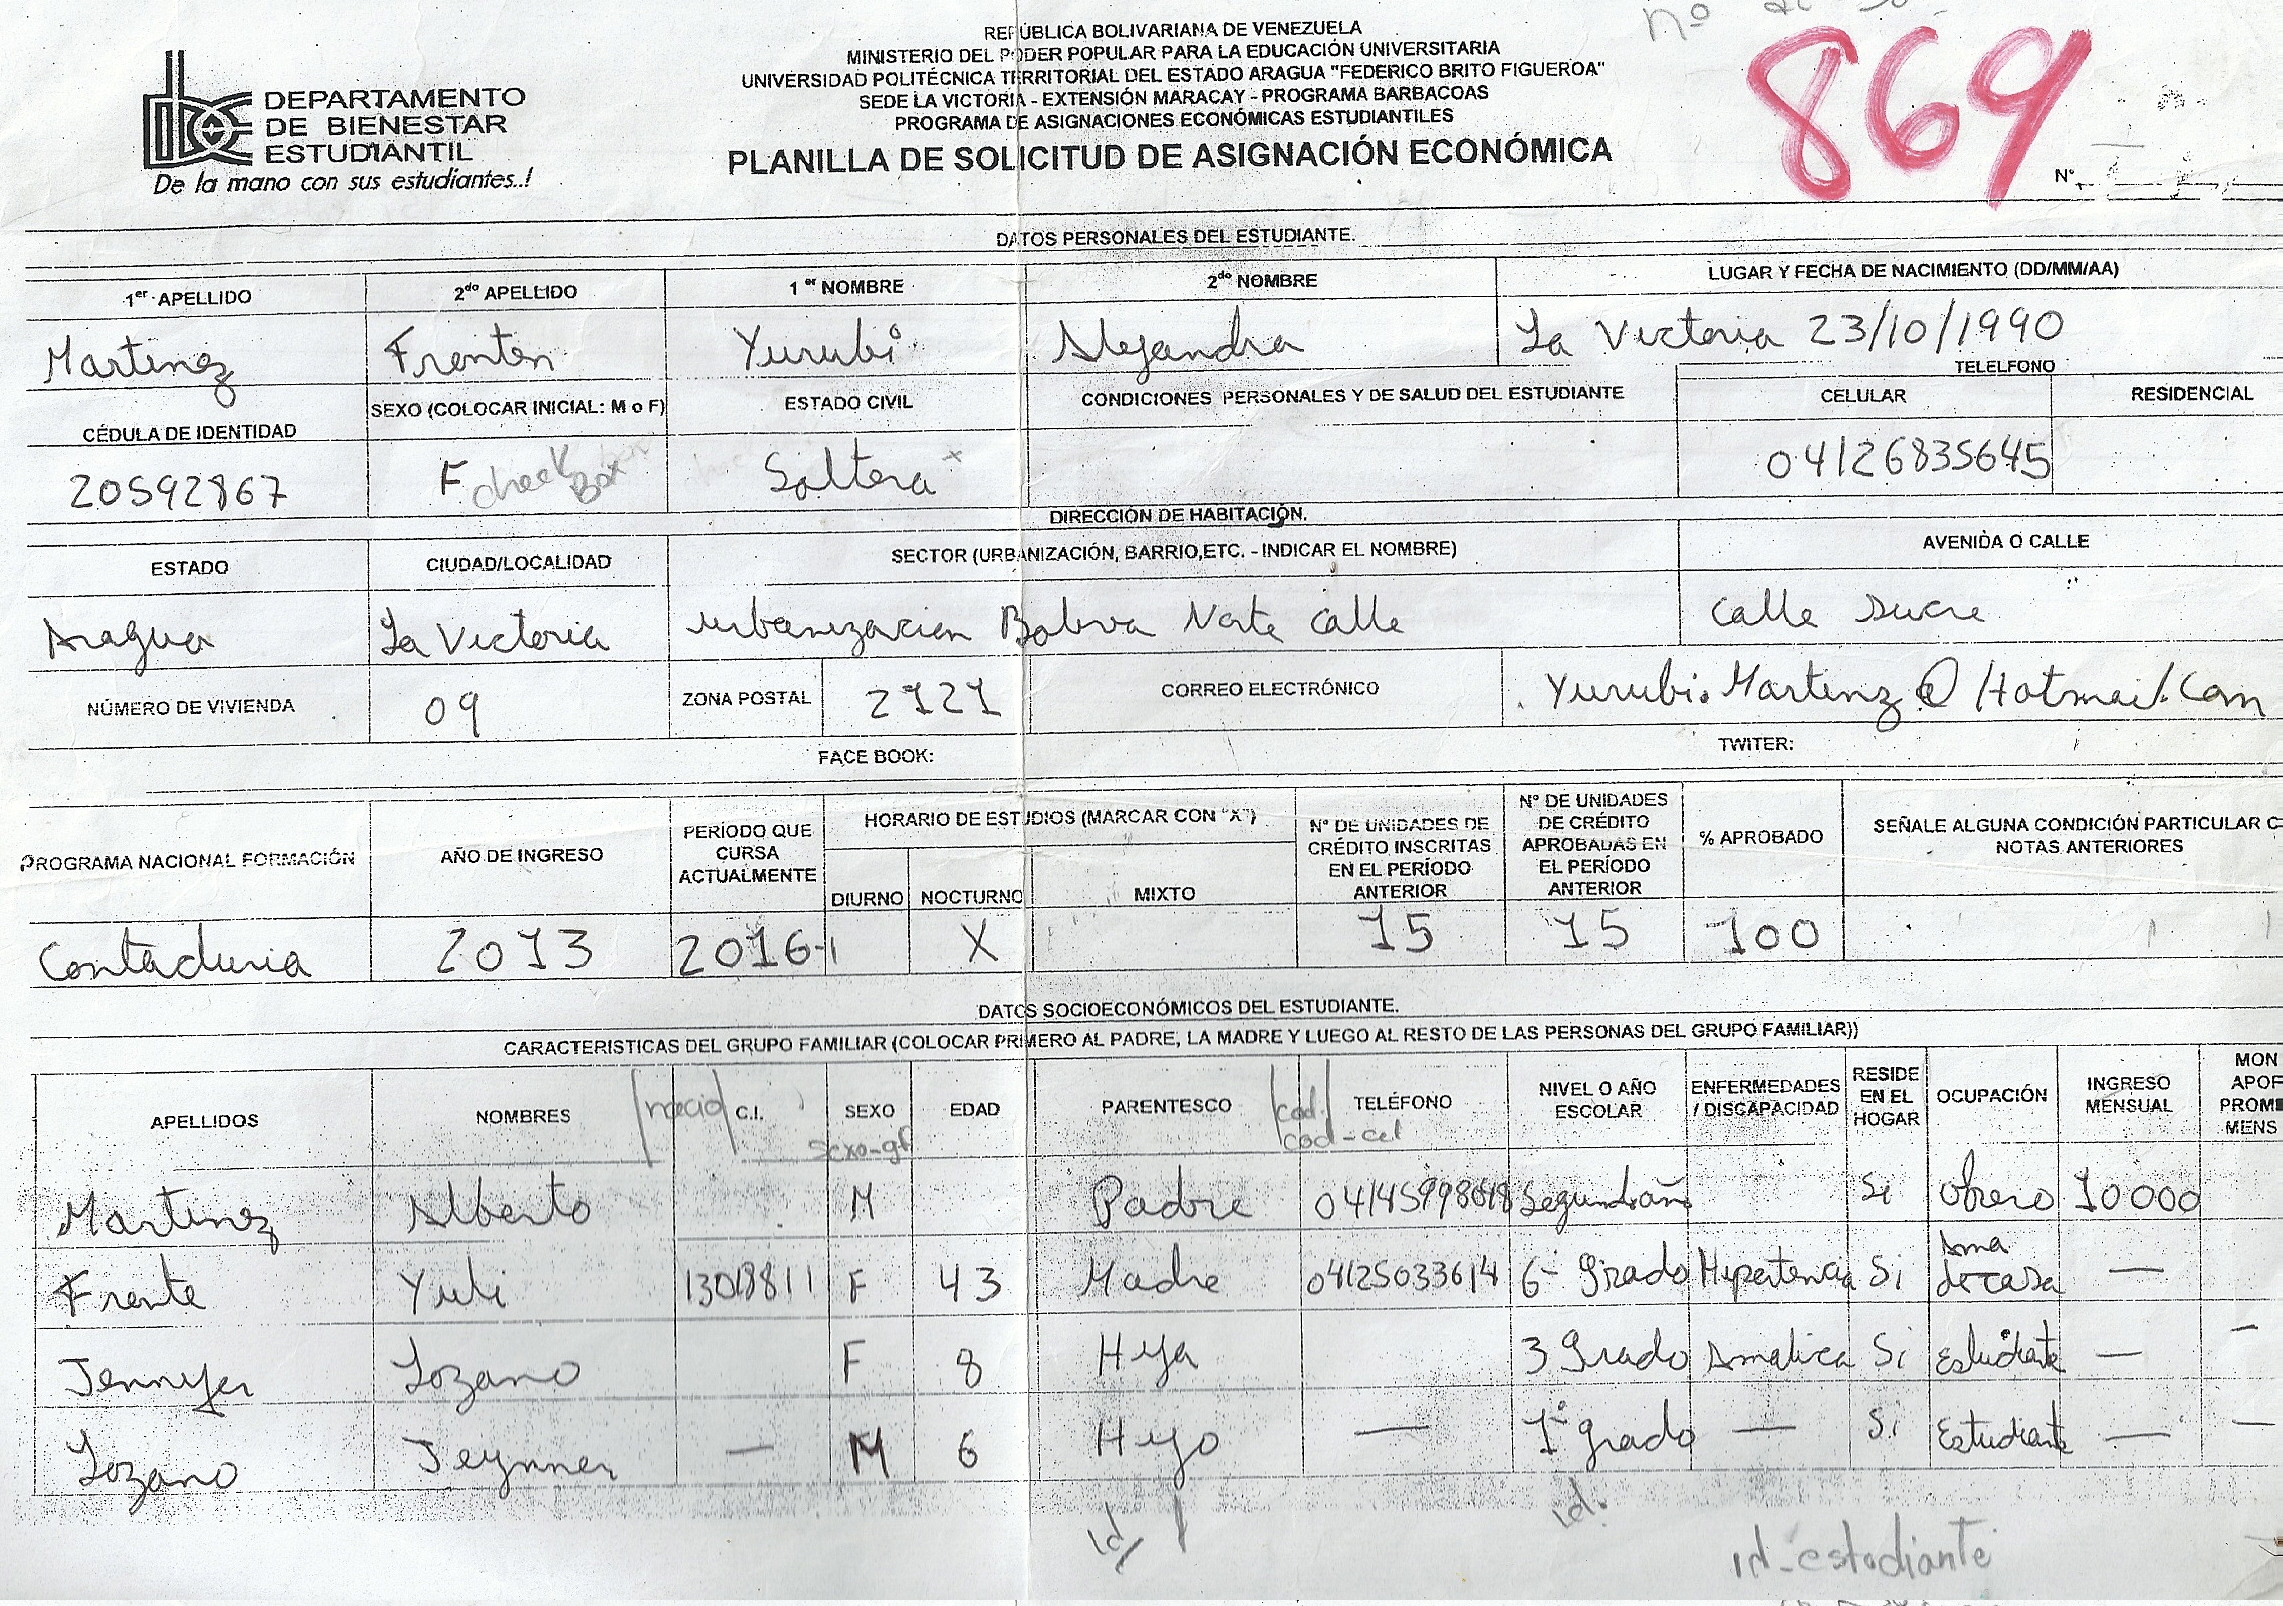 REPÚBLICA BOLIVARIANA DE VENEZUELA
MINISTERIO DEL PODER POPULAR PARA LA EDUCACIÓN UNIVERSITARIA
UNIVERSIDAD POLITÉCNICA TERRITORIAL DEL ESTADO ARAGUA "FEDERICO BRITO FIGUEROA"
SEDE LA VICTORIA - EXTENSIÓN MARACAY - PROGRAMA BARBACOAS
PROGRAMA DE ASIGNACIONES ECONÓMICAS ESTUDIANTILES
PLANILLA DE SOLICITUD DE ASIGNACIÓN ECONÓMICA
DEPARTAMENTO
DE BIENESTAR
ESTUDIANTIL
De la mano con sus estudiantes..!
nº
869
N°
DATOS PERSONALES DEL ESTUDIANTE.
1er APELLIDO 2do APELLIDO 1er NOMBRE 2do NOMBRE LUGAR Y FECHA DE NACIMIENTO (DD/MM/AA)
Martinez Frenten Yurubi Alejandra La Victoria 23/10/1990
TELELFONO
CÉDULA DE IDENTIDAD SEXO (COLOCAR INICIAL: M o F) ESTADO CIVIL CONDICIONES PERSONALES Y DE SALUD DEL ESTUDIANTE CELULAR RESIDENCIAL
20592867 F check Box Soltera x 04126835645
DIRECCIÓN DE HABITACIÓN.
ESTADO CIUDAD/LOCALIDAD SECTOR (URBANIZACIÓN, BARRIO,ETC. - INDICAR EL NOMBRE) AVENIDA O CALLE
Aragua La Victoria urbanizacion Boliva Norte Calle Calle Sucre
NÚMERO DE VIVIENDA 09 ZONA POSTAL 2121 CORREO ELECTRÓNICO Yurubi.Martinz@Hotmail.Com
FACE BOOK: TWITER:
PROGRAMA NACIONAL FORMACIÓN AÑO DE INGRESO PERÍODO QUE CURSA ACTUALMENTE HORARIO DE ESTUDIOS (MARCAR CON "X") DIURNO NOCTURNO MIXTO N° DE UNIDADES DE CRÉDITO INSCRITAS EN EL PERÍODO ANTERIOR N° DE UNIDADES DE CRÉDITO APROBADAS EN EL PERÍODO ANTERIOR % APROBADO SEÑALE ALGUNA CONDICIÓN PARTICULAR NOTAS ANTERIORES
Contaduria 2013 2016-1 X 15 15 100
DATOS SOCIOECONÓMICOS DEL ESTUDIANTE.
CARACTERISTICAS DEL GRUPO FAMILIAR (COLOCAR PRIMERO AL PADRE, LA MADRE Y LUEGO AL RESTO DE LAS PERSONAS DEL GRUPO FAMILIAR))
APELLIDOS NOMBRES nacio C.I. SEXO EDAD PARENTESCO cod. TELÉFONO NIVEL O AÑO ESCOLAR ENFERMEDADES / DISCAPACIDAD RESIDE EN EL HOGAR OCUPACIÓN INGRESO MENSUAL MON APOF PROME MENS
sexo-gf cod-cel
Martinez Alberto M Padre Segundo año Si Obrero 10000
Frente Yubi 13018811 F 43 Madre 04125033614 6- Grado Hipertencia Si Ama de casa —
Jennyfer Lozano F 8 Hija 3 Grado Si Estudiante — —
Lozano Jeynner — M 6 Hijo — 1º grado — Si Estudiante — —
id id.
id-estudiante